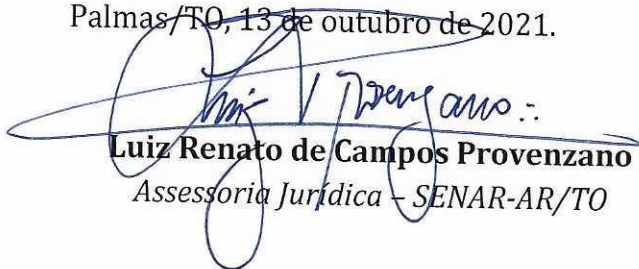 Palmas/TO, 13 de outubro de 2021.
Luiz Renato de Campos Provenzano
Assessoria Jurídica – SENAR-AR/TO